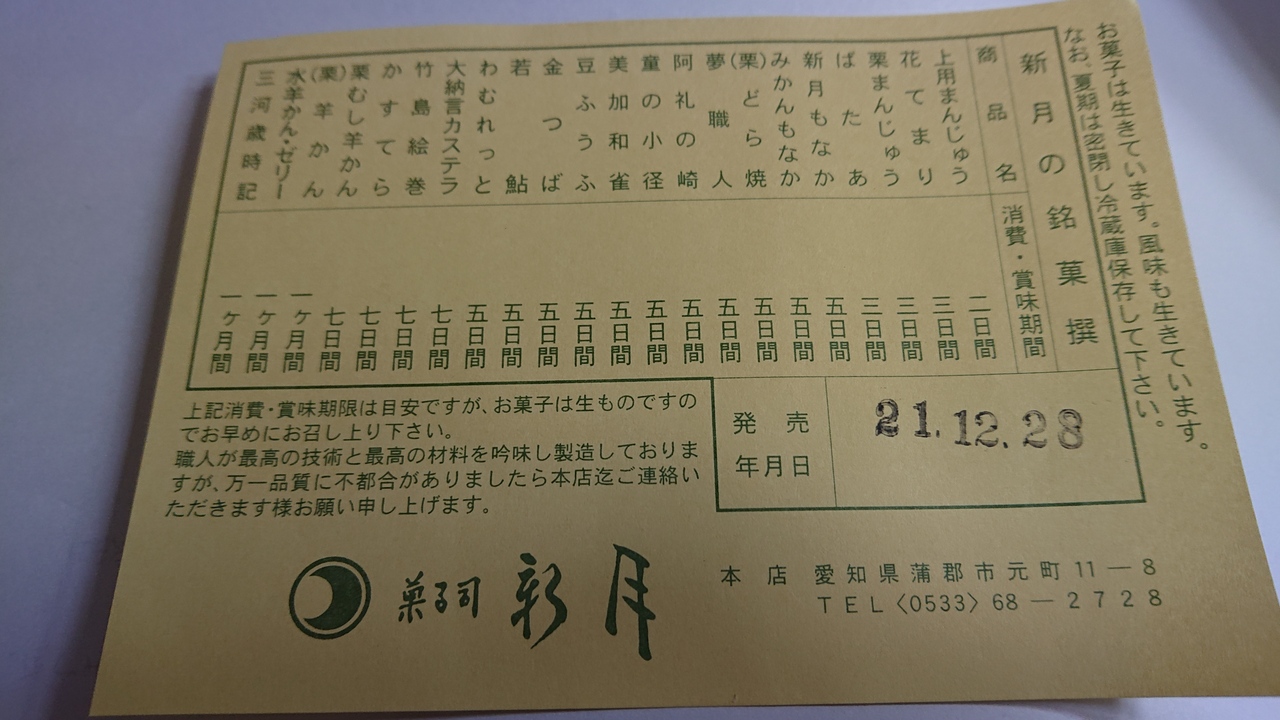 お菓子は生きています。風味も生きています。
なお、夏期は密閉し冷蔵庫保存して下さい。
新月の銘菓撰
商品名 消費・賞味期間
上用まんじゅう 二日間
花てまり 三日間
栗まんじゅう 三日間
ばたあ 三日間
新月もなか 五日間
みかんもなか 五日間
(栗)どら焼 五日間
夢職人 五日間
阿礼の崎 五日間
童の小径 五日間
美加和雀 五日間
豆ふうふ 五日間
金つば 五日間
若鮎 五日間
わむれっと 五日間
大納言カステラ 七日間
竹島絵巻 七日間
かすてら 七日間
栗むし羊かん 七日間
(栗)羊かん 一ヶ月間
水羊かん・ゼリー 一ヶ月間
三河歳時記 一ヶ月間
発売
年月日
21.12.28
上記消費・賞味期限は目安ですが、お菓子は生ものですの
でお早めにお召し上り下さい。
職人が最高の技術と最高の材料を吟味し製造しておりま
すが、万一品質に不都合がありましたら本店迄ご連絡い
ただきます様お願い申し上げます。
菓子司 新月
本店 愛知県蒲郡市元町11―8
TEL〈0533〉68―2728